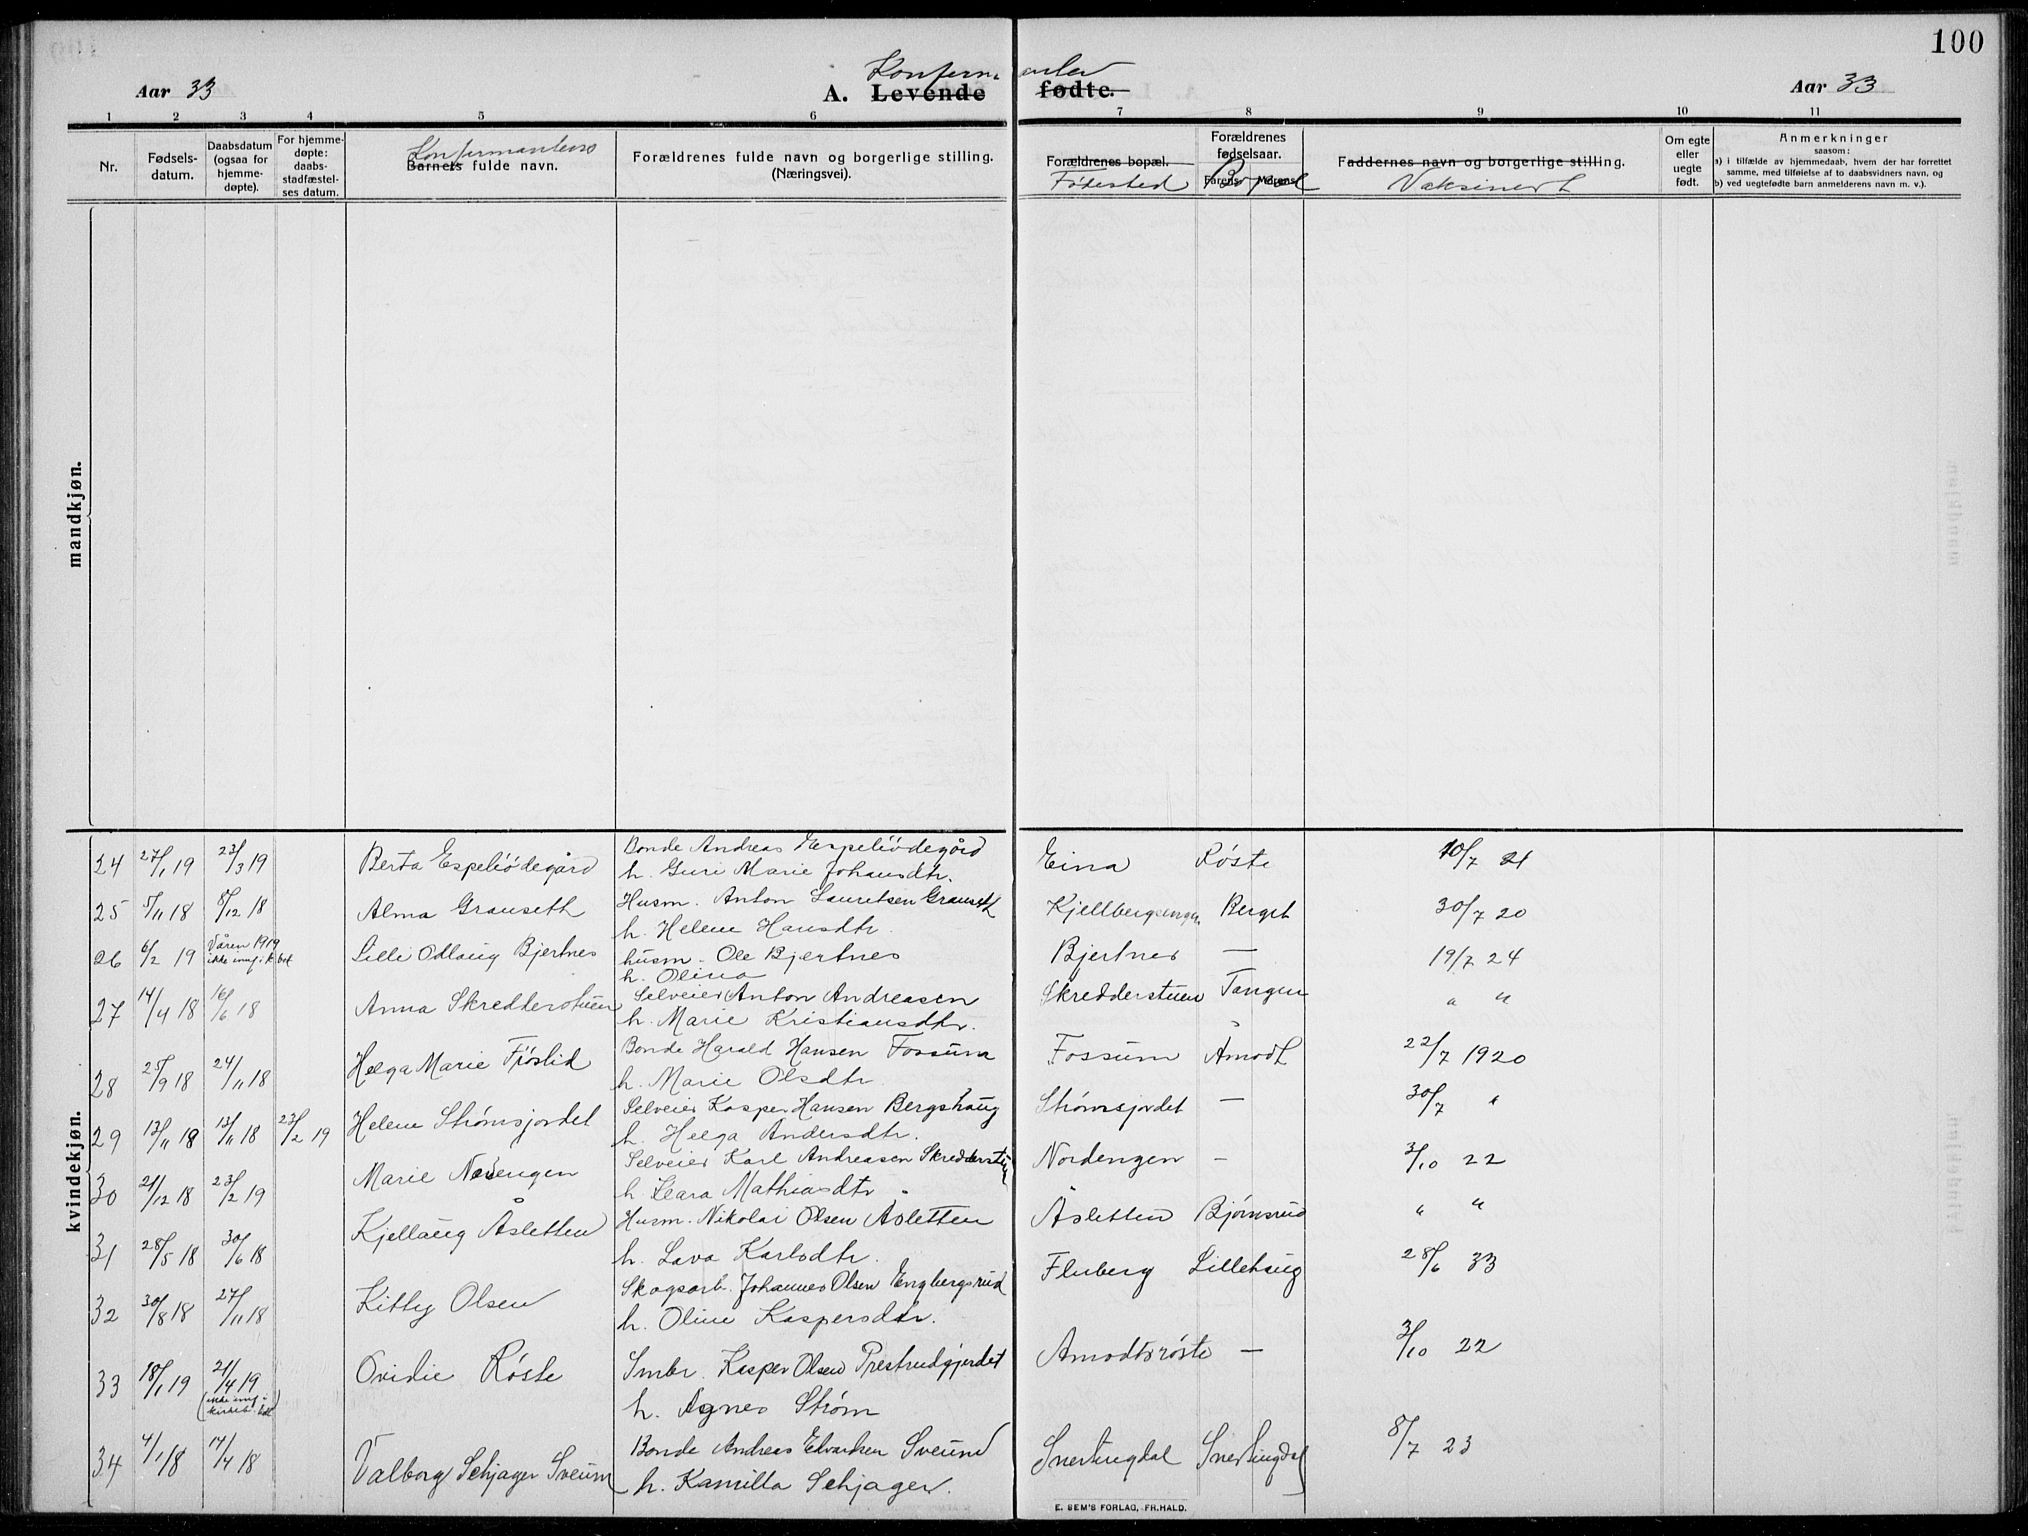 100
Aar 33
Konfirm anter
A. Levende fødte.
Aar 33
1 2 3 4 5 6 7 8 9 10 11
Nr.
Fødsels-
datum.
Daabsdatum
(ogsaa for
hjemme-
døpte).
For hjemme-
døpte:
daabs-
stadfæstel-
ses datum.
Konfirmantens
Barnets fulde navn.
Forældrenes fulde navn og borgerlige stilling.
(Næringsvei).
Forældrenes bopæl.
Fødested
Forældrenes
fødselsaar.
Farens Morens
Bopæl
Faddernes navn og borgerlige stilling.
Vaksinert
Om egte
eller
uegte
født.
Anmerkninger
saasom:
a) i tilfælde av hjemmedaab, hvem der har forrettet
samme, med tilføielse af to daabsvidners navn, og
b) ved uegtefødte barn anmelderens navn m. v.).
mandkjøn.
kvindekjøn.
24 27/1 19 23/3 19 Berta Espeliødegård Bonde Andreas Espeliødegård Eina Røste 10/7 21
h. Guri Marie Johansdtr.
25 5/11 18 8/12 18 Alma Granseth Husm. Anton Lauritsen Granseth Kjellbergsengen Berget 30/7 20
h. Helene Hansdtr.
26 6/2 19 Våren 1919 Lilli Odlaug Bjertnes husm. Ole Bjertnes Bjertnes — 19/7 24
ikke innf. i k.bok h. Olina
27 14/4 18 16/6 18 Anna Skredderstuen Selveier Anton Andreasen Skredderstuen Tangen " "
h. Marie Kristiansdtr.
28 25/9 18 24/11 18 Helga Marie Fjöslid Bonde Harald Hansen Fossum Fossum Åmodt 22/7 1920
h. Marie Olsdtr
29 13/11 18 13/11 18 23/2 19 Helene Strømsjordet Selveier Kasper Hansen Bergshaug Strømsjordet — 30/7 "
h. Helga Andersdtr.
30 21/12 18 23/2 19 Marie Nordengen Selveier Karl Andreasen Skredderstu Nordengen - 3/10 22
h. Klara Mathiasdtr.
31 28/5 18 30/6 18 Kjellaug Åsletten Husm. Nikolai Olsen Åsletten Åsletten Bjørnsrud " "
h. Lava Karlsdtr.
32 30/8 18 27/11 18 Kitty Olsen Skogsarb. Johannes Olsen Engbergsrud Fluberg Lillehaug 28/6 33
h. Oline Kaspersdtr.
33 18/1 19 21/4 19 Ovidie Røste Smbr. Kasper Olsen Prestrudgjerdet Amodtsrøste — 3/10 22
(ikke innf. i
kirkeb.)
h. Agnes Strøm
34 4/1 18 14/4 18 Valborg Schjager Sveum Bonde Andreas Edvardsen Sveum Snertingdal Snertingdal 8/7 23
h. Kamilla Schjager.
E. SEM'S FORLAG, FR.HALD.